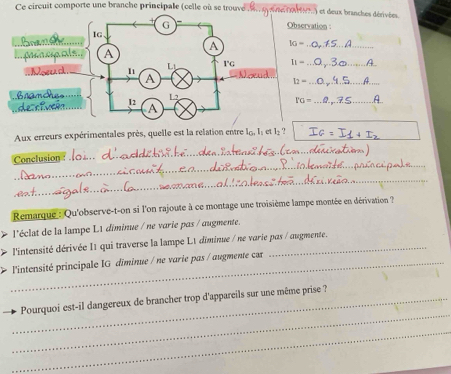 Ce circuit comporte une branche principale (celle où se trouve le générateur) et deux branches dérivées.
Observation :
G
IG
I'G
A
A
Branche
principale
IG = ...0,75 A
Noeud
I1
A
L1
Noeud
I1 = ...0,30 A
Branches
dérivées
I2
A
L2
I2 = ...0,45 A
I'G = ...0,75 A
Aux erreurs expérimentales près, quelle est la relation entre IG, I1 et I2 ?
IG = I1 + I2
Conclusion : loi d'additivité des intensités (en dérivation)
Dans un circuit en dérivation l'intensité principale
est égale à la somme d'intensités dérivées
Remarque : Qu'observe-t-on si l'on rajoute à ce montage une troisième lampe montée en dérivation ?
➢ l'éclat de la lampe L1 diminue / ne varie pas / augmente.
➢ l'intensité dérivée I1 qui traverse la lampe L1 diminue / ne varie pas / augmente.
➢ l'intensité principale IG diminue / ne varie pas / augmente car
→ Pourquoi est-il dangereux de brancher trop d'appareils sur une même prise ?